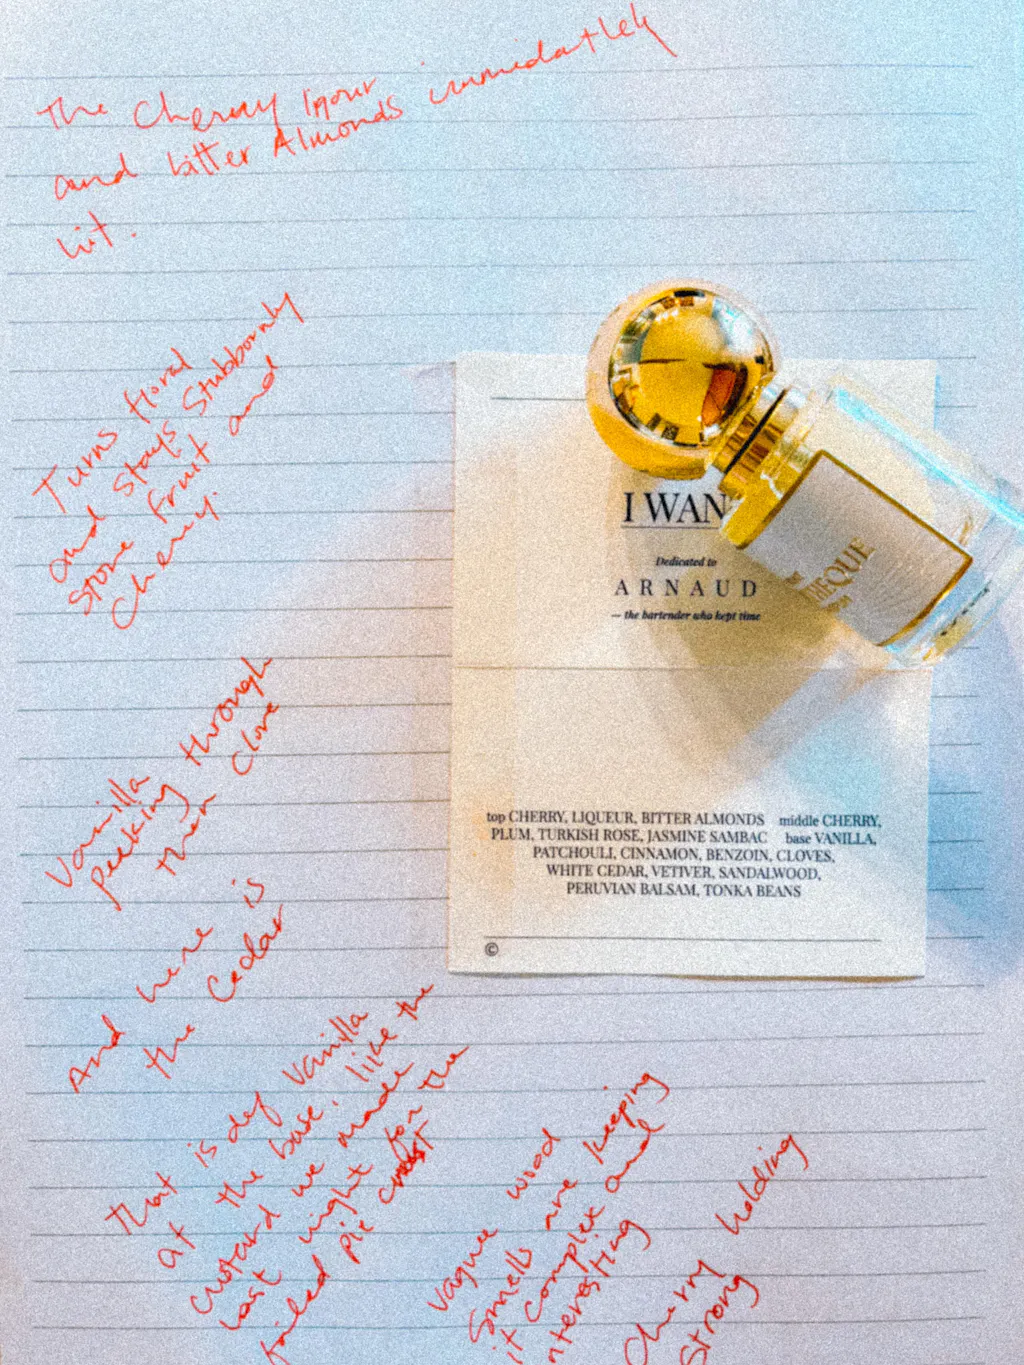 The Cherry liquor
and bitter Almonds immidatley
hit.
Turns floral
and stays stubbornly
stone fruit and
cherry.
Vanilla
peeking through
then clove
And here is
the Cedar
That is def vanilla
at the base, like the
custard we made
last night for the
failed pie crust
Vague wood
smells are keeping
it complex and
interesting
Cherry holding
strong
I WAN
Dedicated to
ARNAUD
— the bartender who kept time
top CHERRY, LIQUEUR, BITTER ALMONDS middle CHERRY,
PLUM, TURKISH ROSE, JASMINE SAMBAC base VANILLA,
PATCHOULI, CINNAMON, BENZOIN, CLOVES,
WHITE CEDAR, VETIVER, SANDALWOOD,
PERUVIAN BALSAM, TONKA BEANS
©
HEQUE